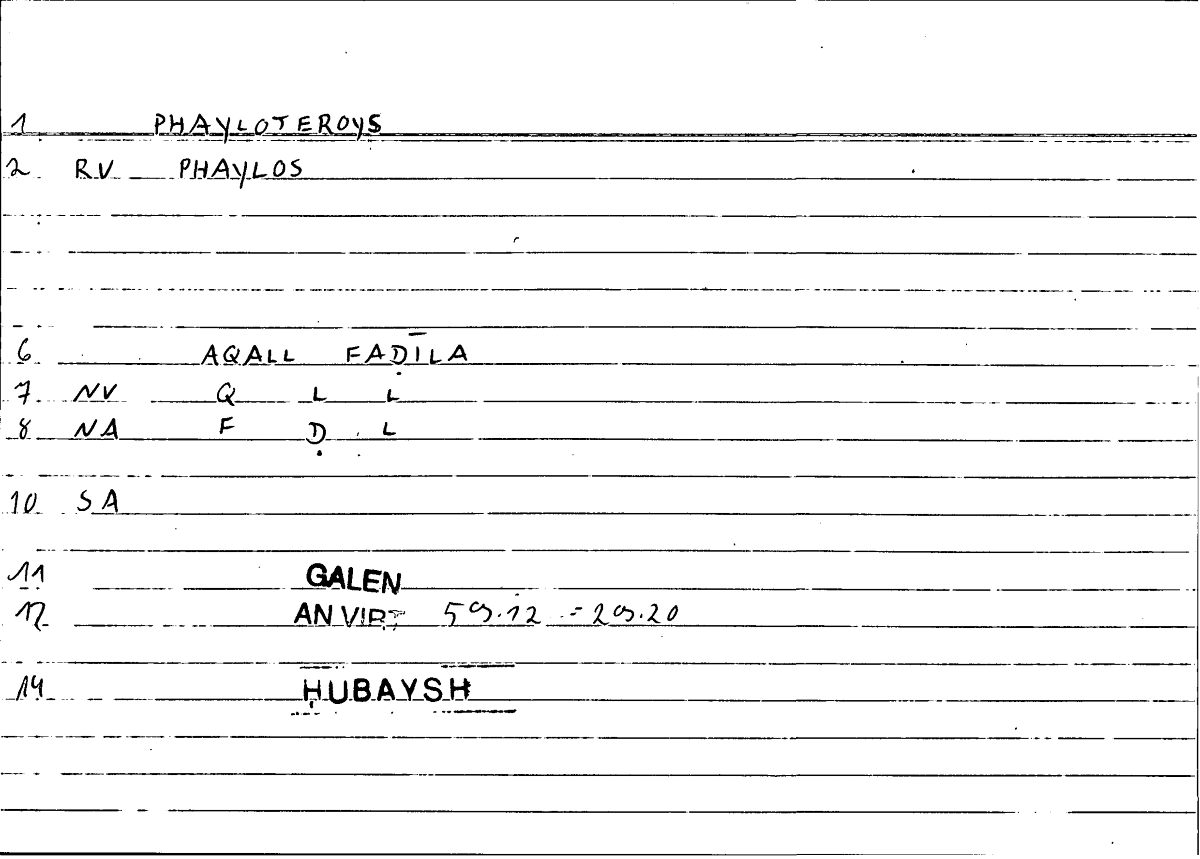 1 PHAYLOTEROYS
2 RV PHAYLOS
6 AQALL FAḌĪLA
7 NV Q L L
8 NA F Ḍ L
10 SA
11 GALEN
12 AN VIRT 59.12 = 29.20
14 ḤUBAYSH